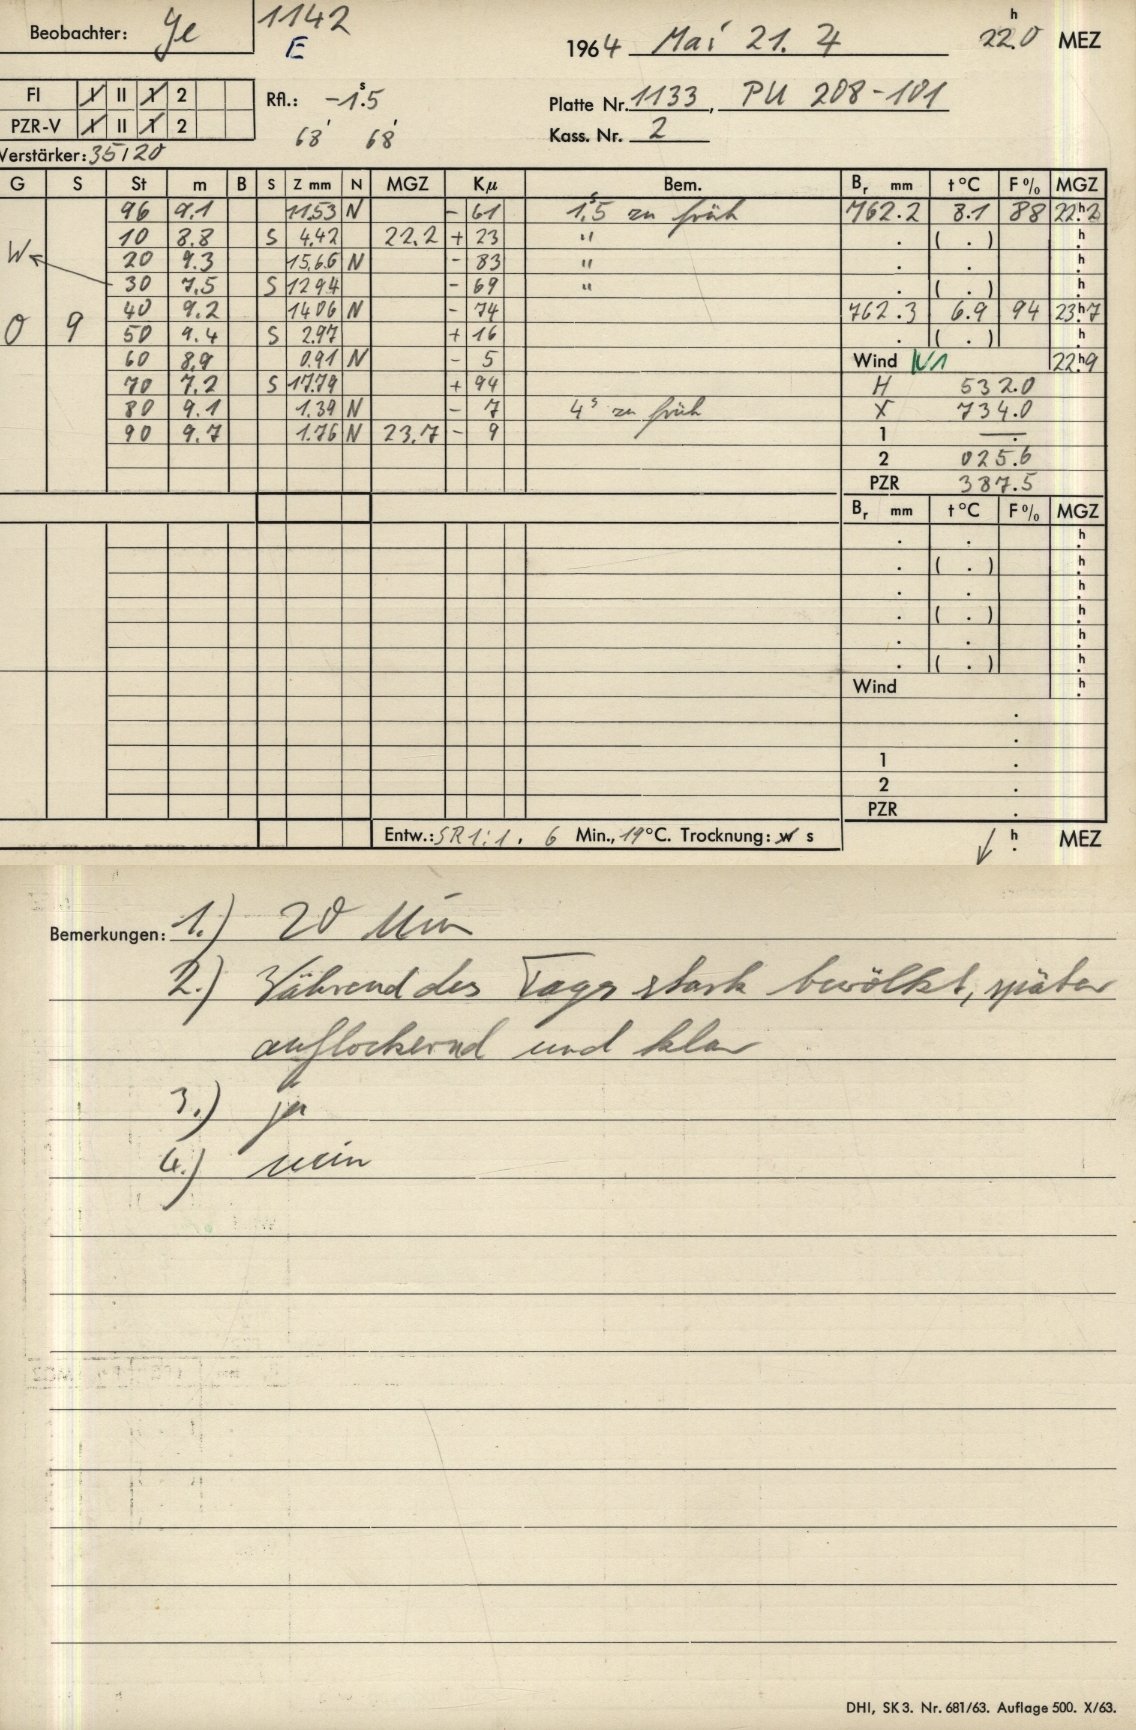 Beobachter: Ye
1142
E
1964 Mai 21. 4 22.0 h MEZ
FI I II 1 2
PZR-V I II 1 2
Rfl.: -1.5 s
68' 68'
Platte Nr. 1133, PU 208-101
Kass. Nr. 2
Verstärker: 35/20
G S St m B S Z mm N MGZ Kµ Bem. Br mm t°C F% MGZ
96 9.1 11.53 N - 61 1.5 s zu früh 762.2 8.1 88 22h2
10 8.8 S 4.42 22.2 + 23 " . ( . ) h
W 20 9.3 15.66 N - 83 " . . h
30 7.5 S 12.94 - 69 " . ( . ) h
40 9.2 14.06 N - 74 762.3 6.9 94 23h7
0 9 50 9.4 S 2.97 + 16 . ( . ) h
60 8.9 0.91 N - 5 Wind N1 22h9
70 7.2 S 17.79 + 94 H 532.0
80 9.1 1.39 N - 7 4 s zu früh X 734.0
90 9.7 1.76 N 23.7 - 9 1 —.
2 025.6
PZR 387.5
Br mm t°C F% MGZ
. . h
. ( . ) h
. . h
. ( . ) h
. . h
. ( . ) h
Wind h
.
.
1 .
2 .
PZR .
Entw.: SR 1:1. 6 Min., 19°C. Trocknung: w s
h MEZ
Bemerkungen: 1.) 20 Min
2.) Während des Tages stark bewölkt, später
auflockernd und klar
3.) ja
4.) nein
DHI, SK 3. Nr. 681/63. Auflage 500. X/63.